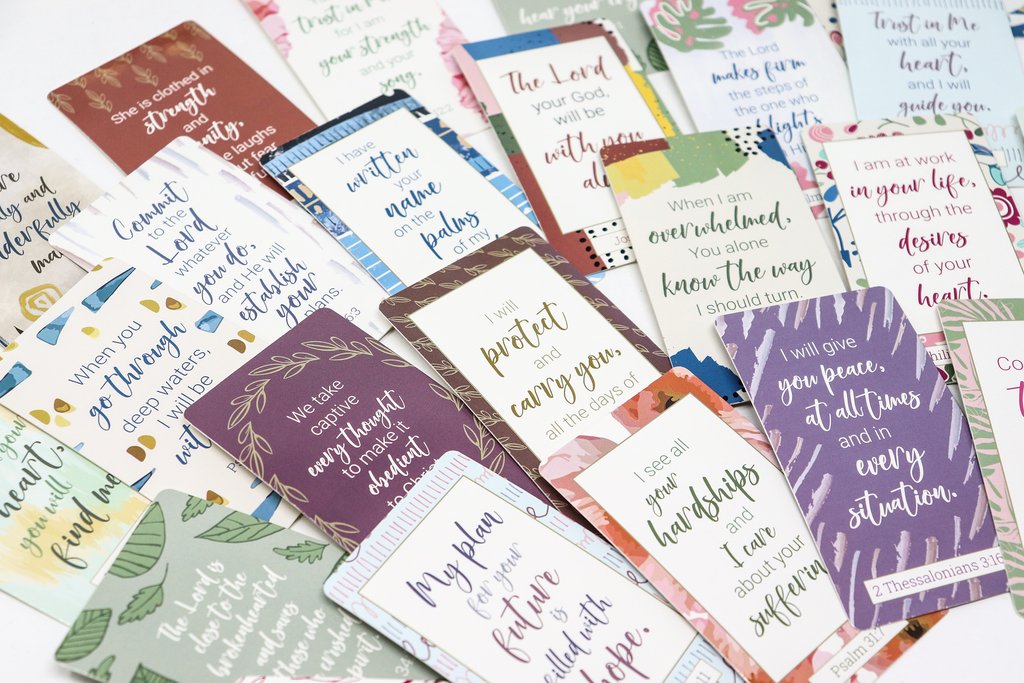 She is clothed in
strength
and
laughs
fear
trust in Me
for I am
your strength
and your
song.
hear your
The Lord
your God,
will be
with you
The Lord
makes firm
the steps of
the one who
Trust in Me
with all your
heart,
and I will
guide you.
and
made
Commit
to the
Lord
whatever
you do,
and He will
establish
your
plans.
I have
written
your
name
on the
palms
of my
When I am
overwhelmed,
You alone
know the way
I should turn.
I am at work
in your life,
through the
desires
of your
heart.
When you
go through
deep waters,
I will be
We take
captive
every thought
to make it
obedient
I will
protect
and
carry you,
all the days of
I will give
you peace,
at all times
and in
every
situation.
2 Thessalonians 3:16
your
heart,
you will
find me
The Lord is
close to the
brokenhearted
and saves
those who
spirit.
My plan
for your
future
is
filled with
hope.
I see all
your
hardships
and
I care
about your
Psalm 31:7